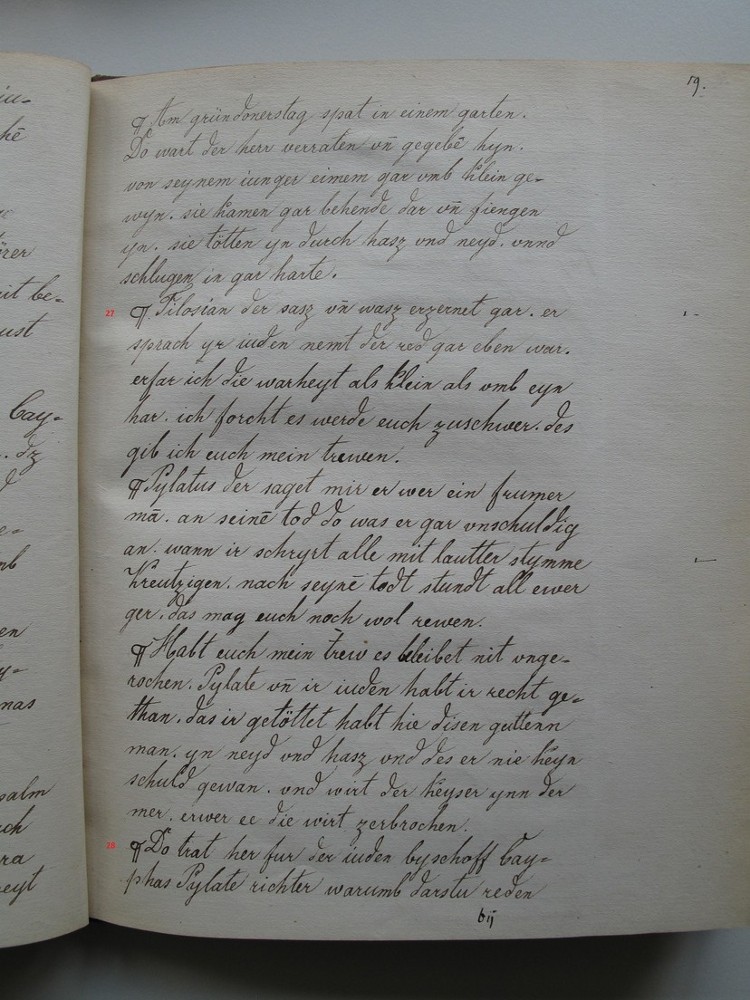 19.
¶ Am gründonerstag spat in einem garten.
Do wart der herr verraten vn̄ gegebē hyn.
von seynem iunger eimem gar vmb klein ge-
wyn. sie kamen gar behende dar vn̄ fiengen
yn. sie tötten yn durch hasz vnd neyd. vnnd
schlugen in gar harte.
27 ¶ Tilosian der sasz vn̄ wasz erzernet gar. er
sprach yr iuden nemt der red gar eben war.
erfar ich die warheyt als klein als vmb eyn
har. ich forcht es werde euch zuschwer. des
gib ich euch mein trewen.
¶ Pylatus der saget mir er wer ein frumer
mā. an seinē tod do was er gar vnschuldig
an. wann ir schryrt alle mit lautter stymme
kreutzigen. nach seynē todt stundt all ewer
ger. das mag euch noch wol rewen.
¶ Habt euch mein trew es bleibet nit vnge-
rochen. Pylate vn̄ ir iuden habt ir recht ge-
than. das ir getöttet habt hie disen guttenn
man. yn neyd vnd hasz vnd des er nie keyn
schuld gewan. vnd wirt der keyser ynn der
mer. erwer ee die wirt zerbrochen.
28 ¶ Do trat her fur der iuden byschoff Cay-
phas Pylate richter warumb darstu reden
bij
iu-
hē
örer
it be-
ust
Cay-
. dz
e-
mb
en
y-
nas
salm
ch
ra
reyt